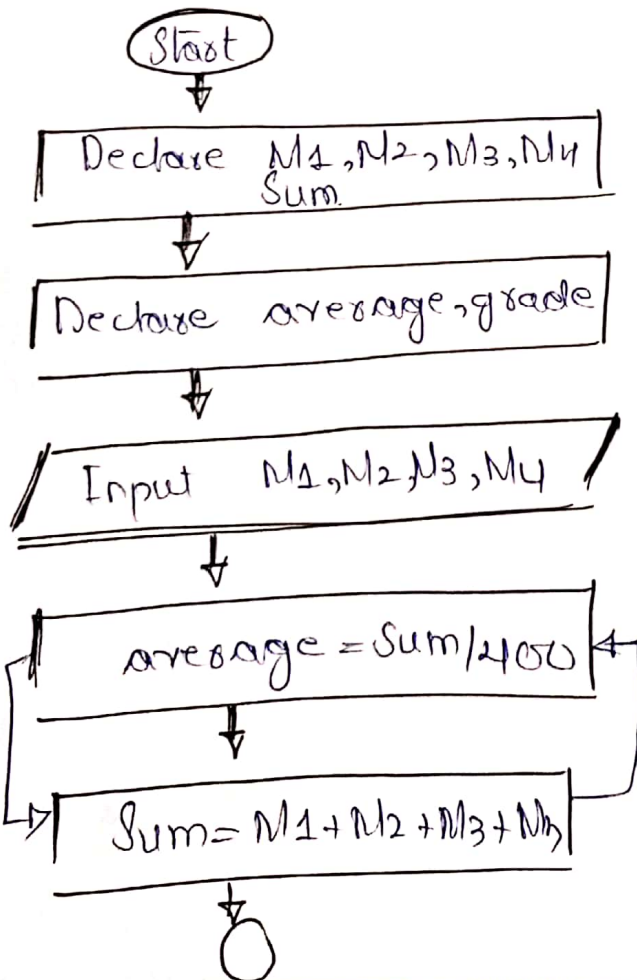 Start
Declare M1, M2, M3, M4
Sum.
Declare average, grade
Input M1, M2, M3, M4
average = Sum/400
Sum = M1 + M2 + M3 + M3